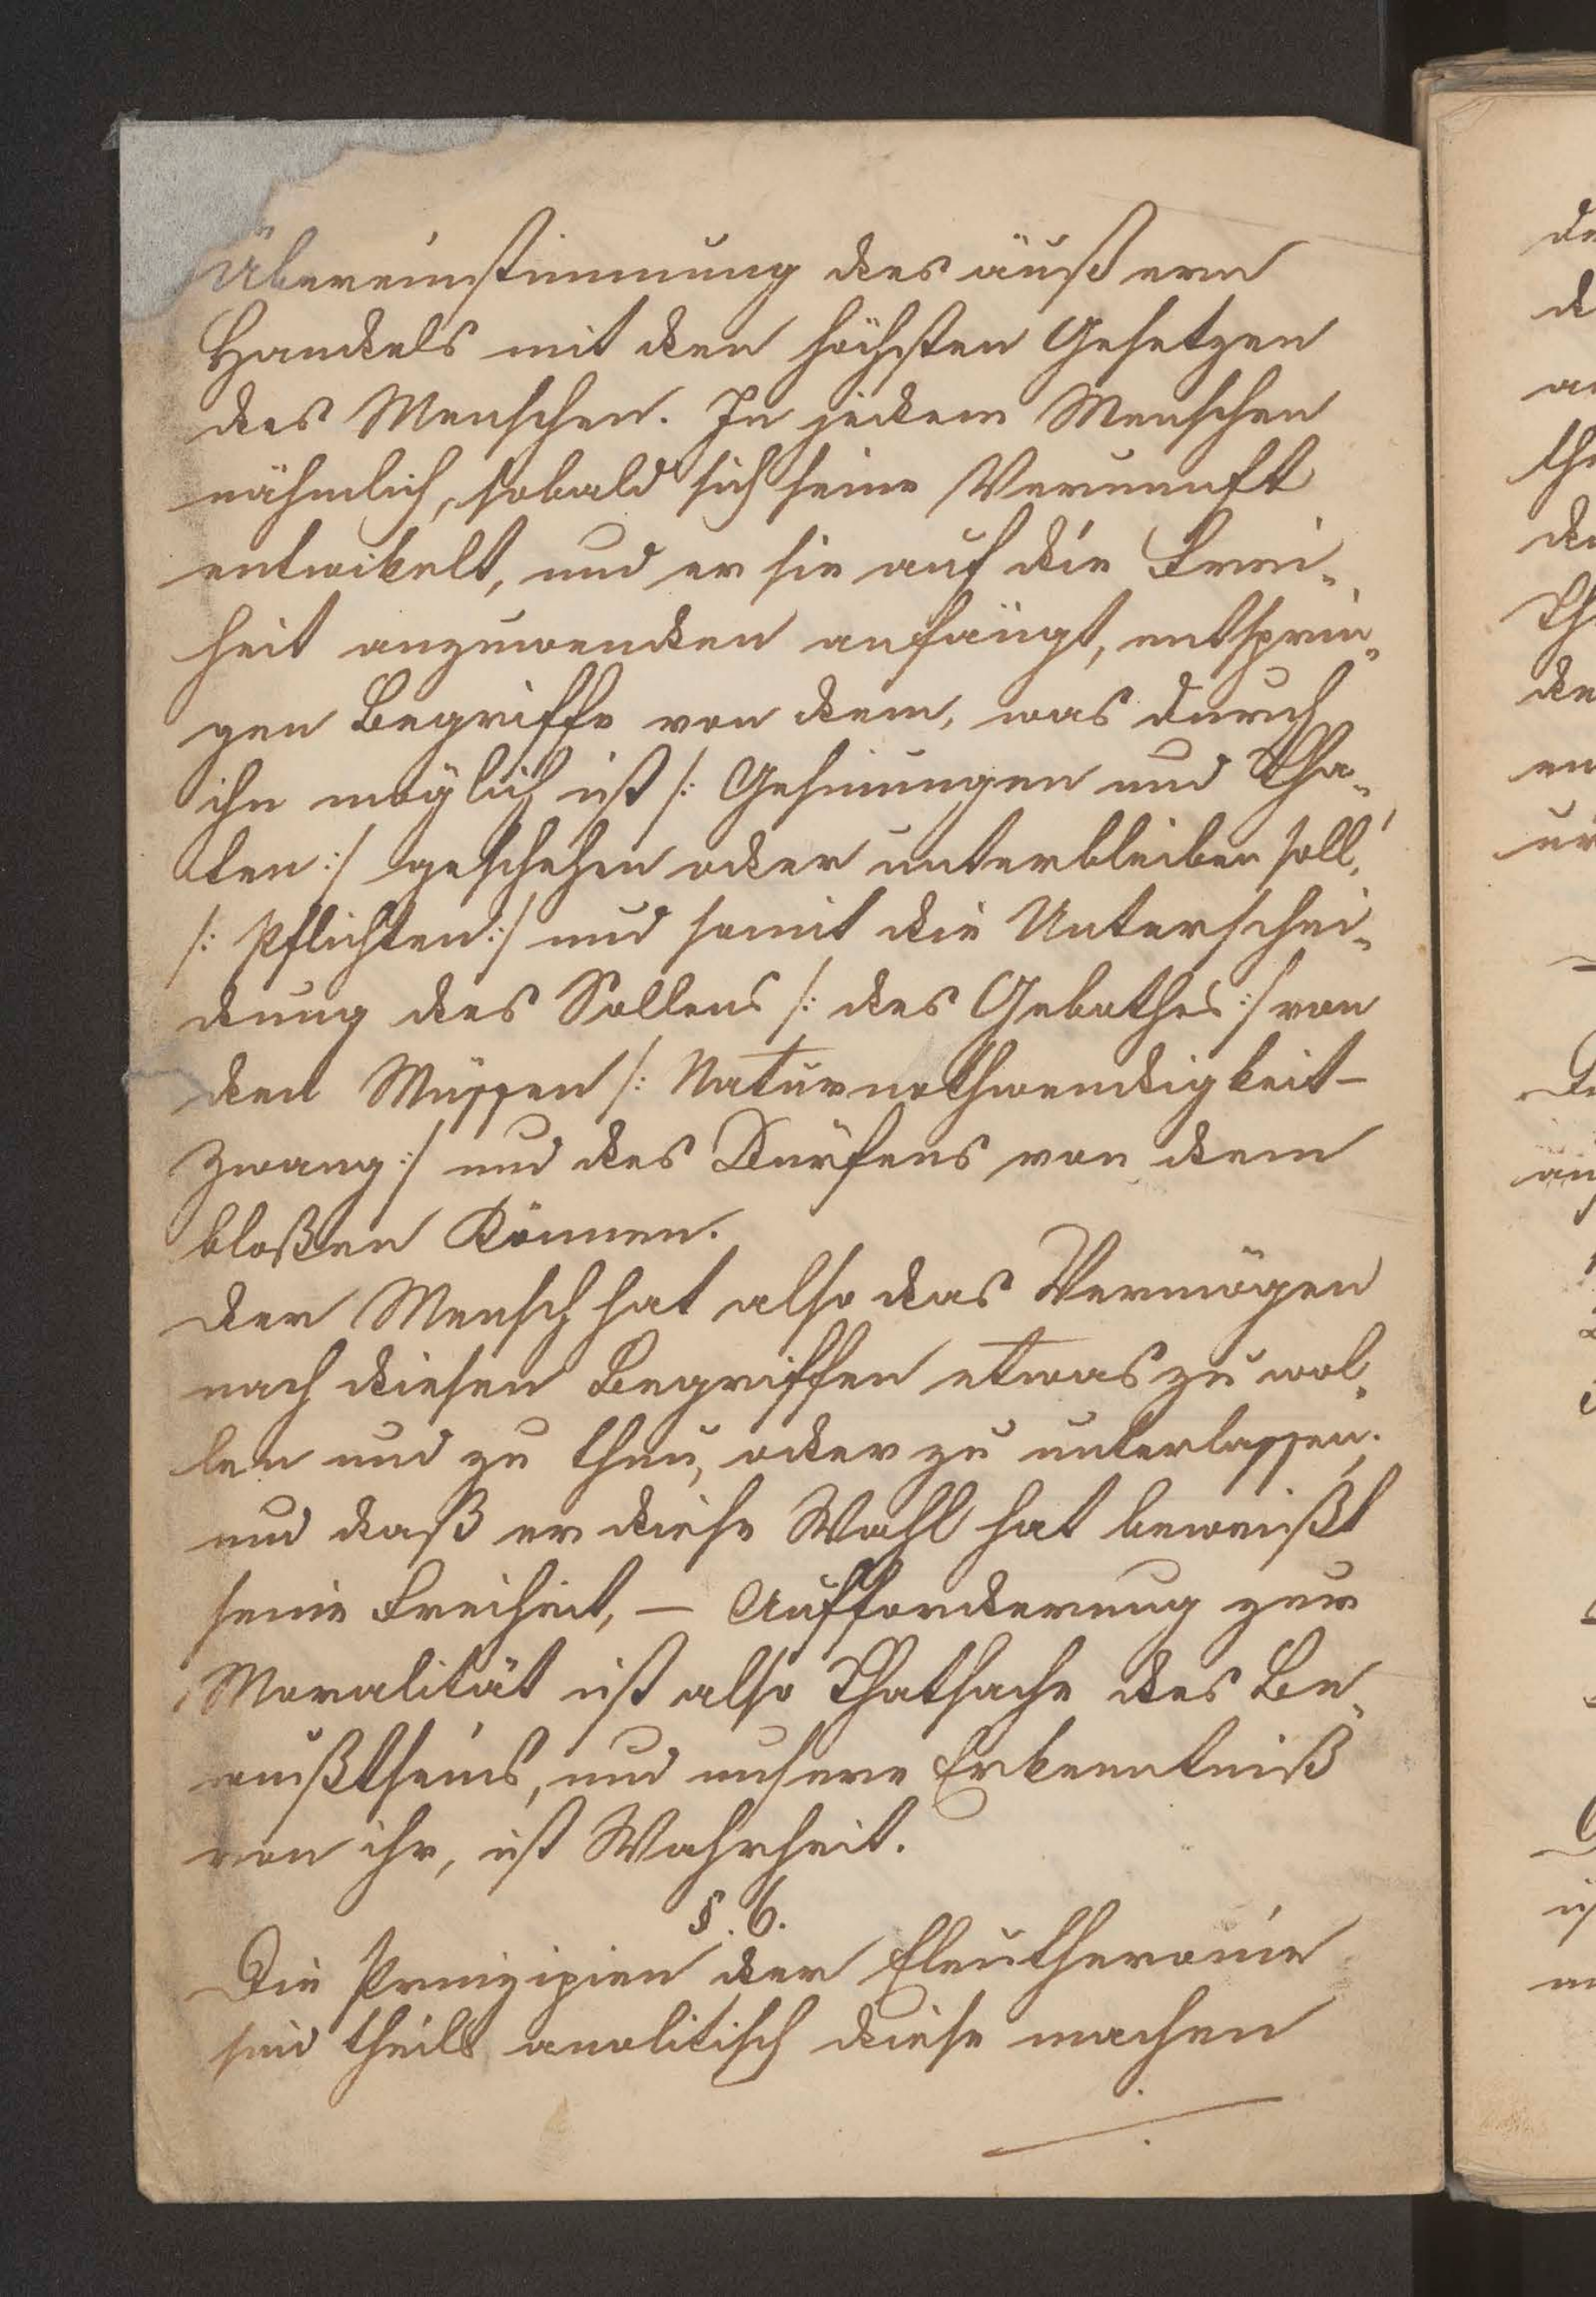 Übereinstimmung des äußern
Handels mit den höchsten Gesetzen
des Menschen. In jedem Menschen
nähmlich, sobald sich seine Vernunft
entwikelt, und er sie auf die Frei-
heit anzuwenden anfängt, entsprin-
gen Begriffe von dem, was durch
ihn möglich ist /: Gesinnungen und Tha-
ten :/ geschehen oder unterbleiben soll,
/: Pflichten :/ und somit die Unterschei-
dung des Sollens /: des Gebothes :/ von
den Müssen /: Naturnothwendigkeit –
Zwang :/ und des Dürfens von dem
bloßen Können.
Der Mensch hat also das Vermögen
nach diesen Begriffen etwas zu wol-
len und zu thun, oder zu unterlassen;
und daß er diese Wahl hat beweißt
seine Freiheit, – Aufforderung zur
Moralität ist also Thatsache des Be-
wußtseins, und unsere Erkenntniß
von ihr, ist Wahrheit.
§. 6.
Die Prinzipien der Eleutheronie
sind theils analitisch diese machen
de
d
a
th
de
Th
de
en
ur
De
an